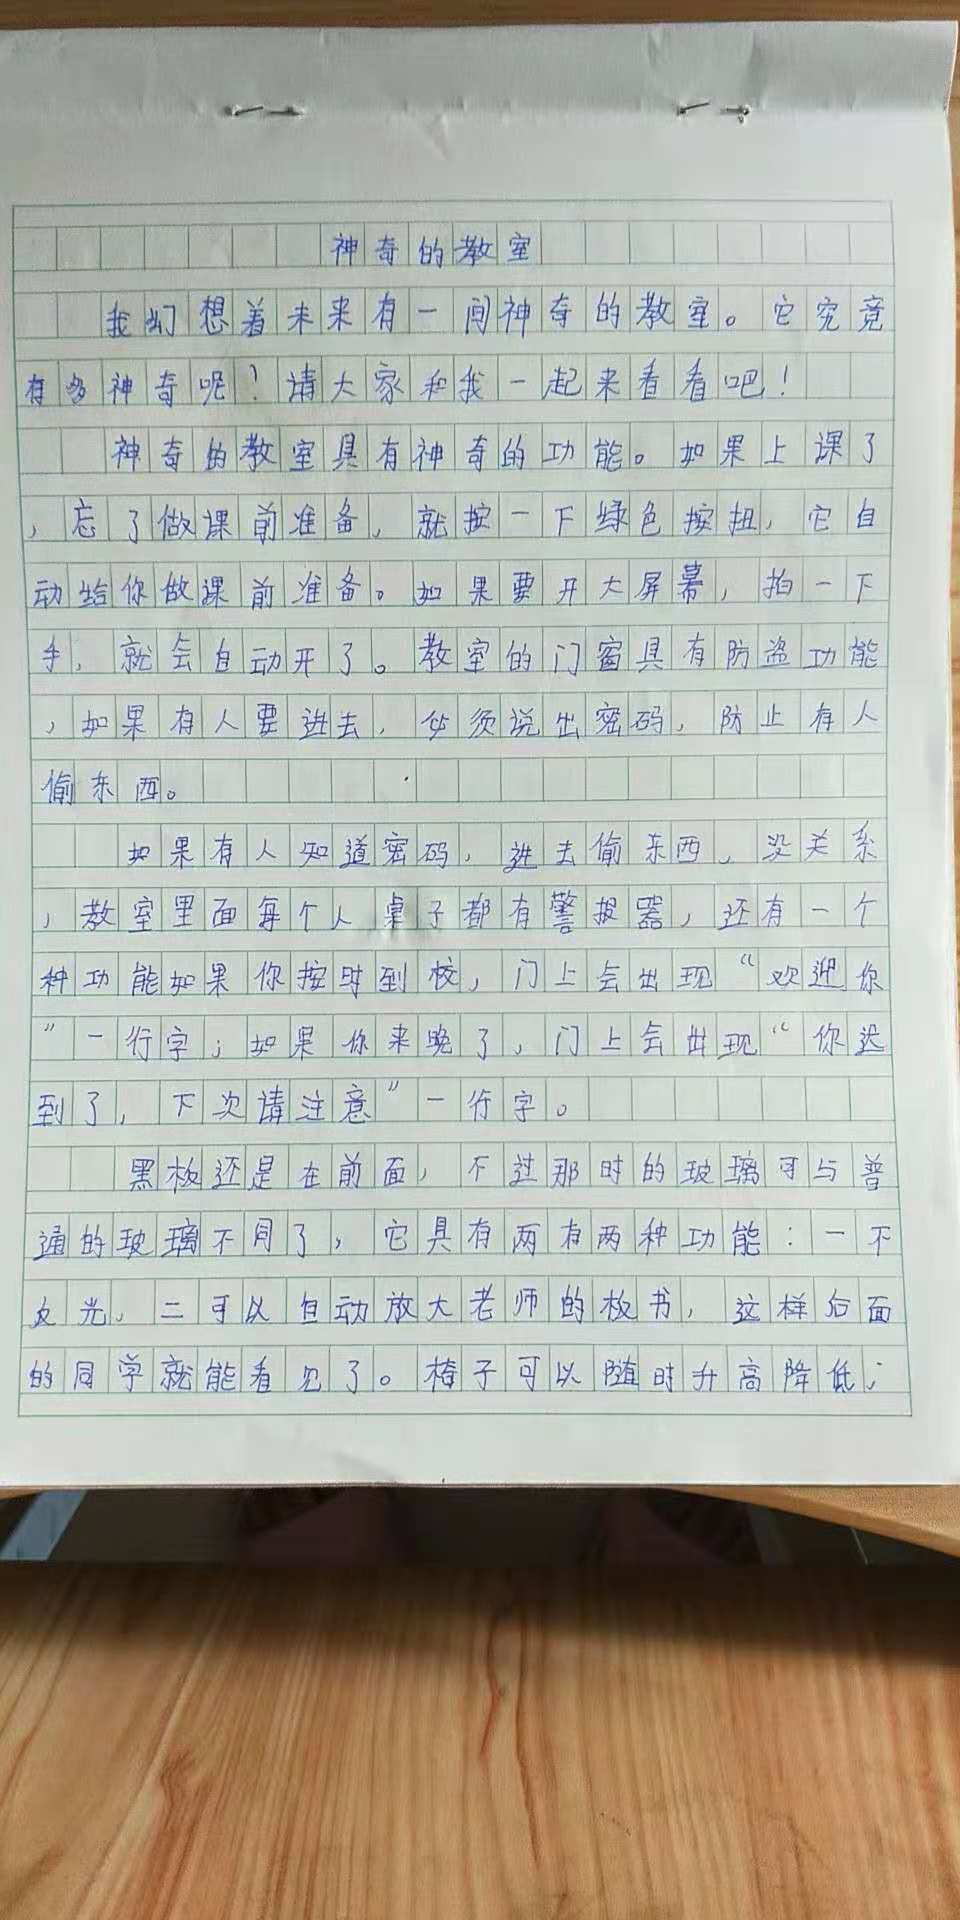 神奇的教室
我幻想着未来有一间神奇的教室。它究竟
有多神奇呢？请大家和我一起来看看吧！
神奇的教室具有神奇的功能。如果上课了
，忘了做课前准备，就按一下绿色按扭，它自
动给你做课前准备。如果要开大屏幕，拍一下
手，就会自动开了。教室的门窗具有防盗功能
，如果有人要进去，必须说出密码，防止有人
偷东西。
如果有人知道密码，进去偷东西，没关系
，教室里面每个人桌子都有警报器，还有一个
种功能如果你按时到校，门上会出现“欢迎你
”一行字；如果你来晚了，门上会出现“你迟
到了，下次请注意”一行字。
黑板还是在前面，不过那时的玻璃可与普
通的玻璃不同了，它具有两有两种功能：一不
反光，二可以自动放大老师的板书，这样后面
的同学就能看见了。椅子可以随时升高降低；